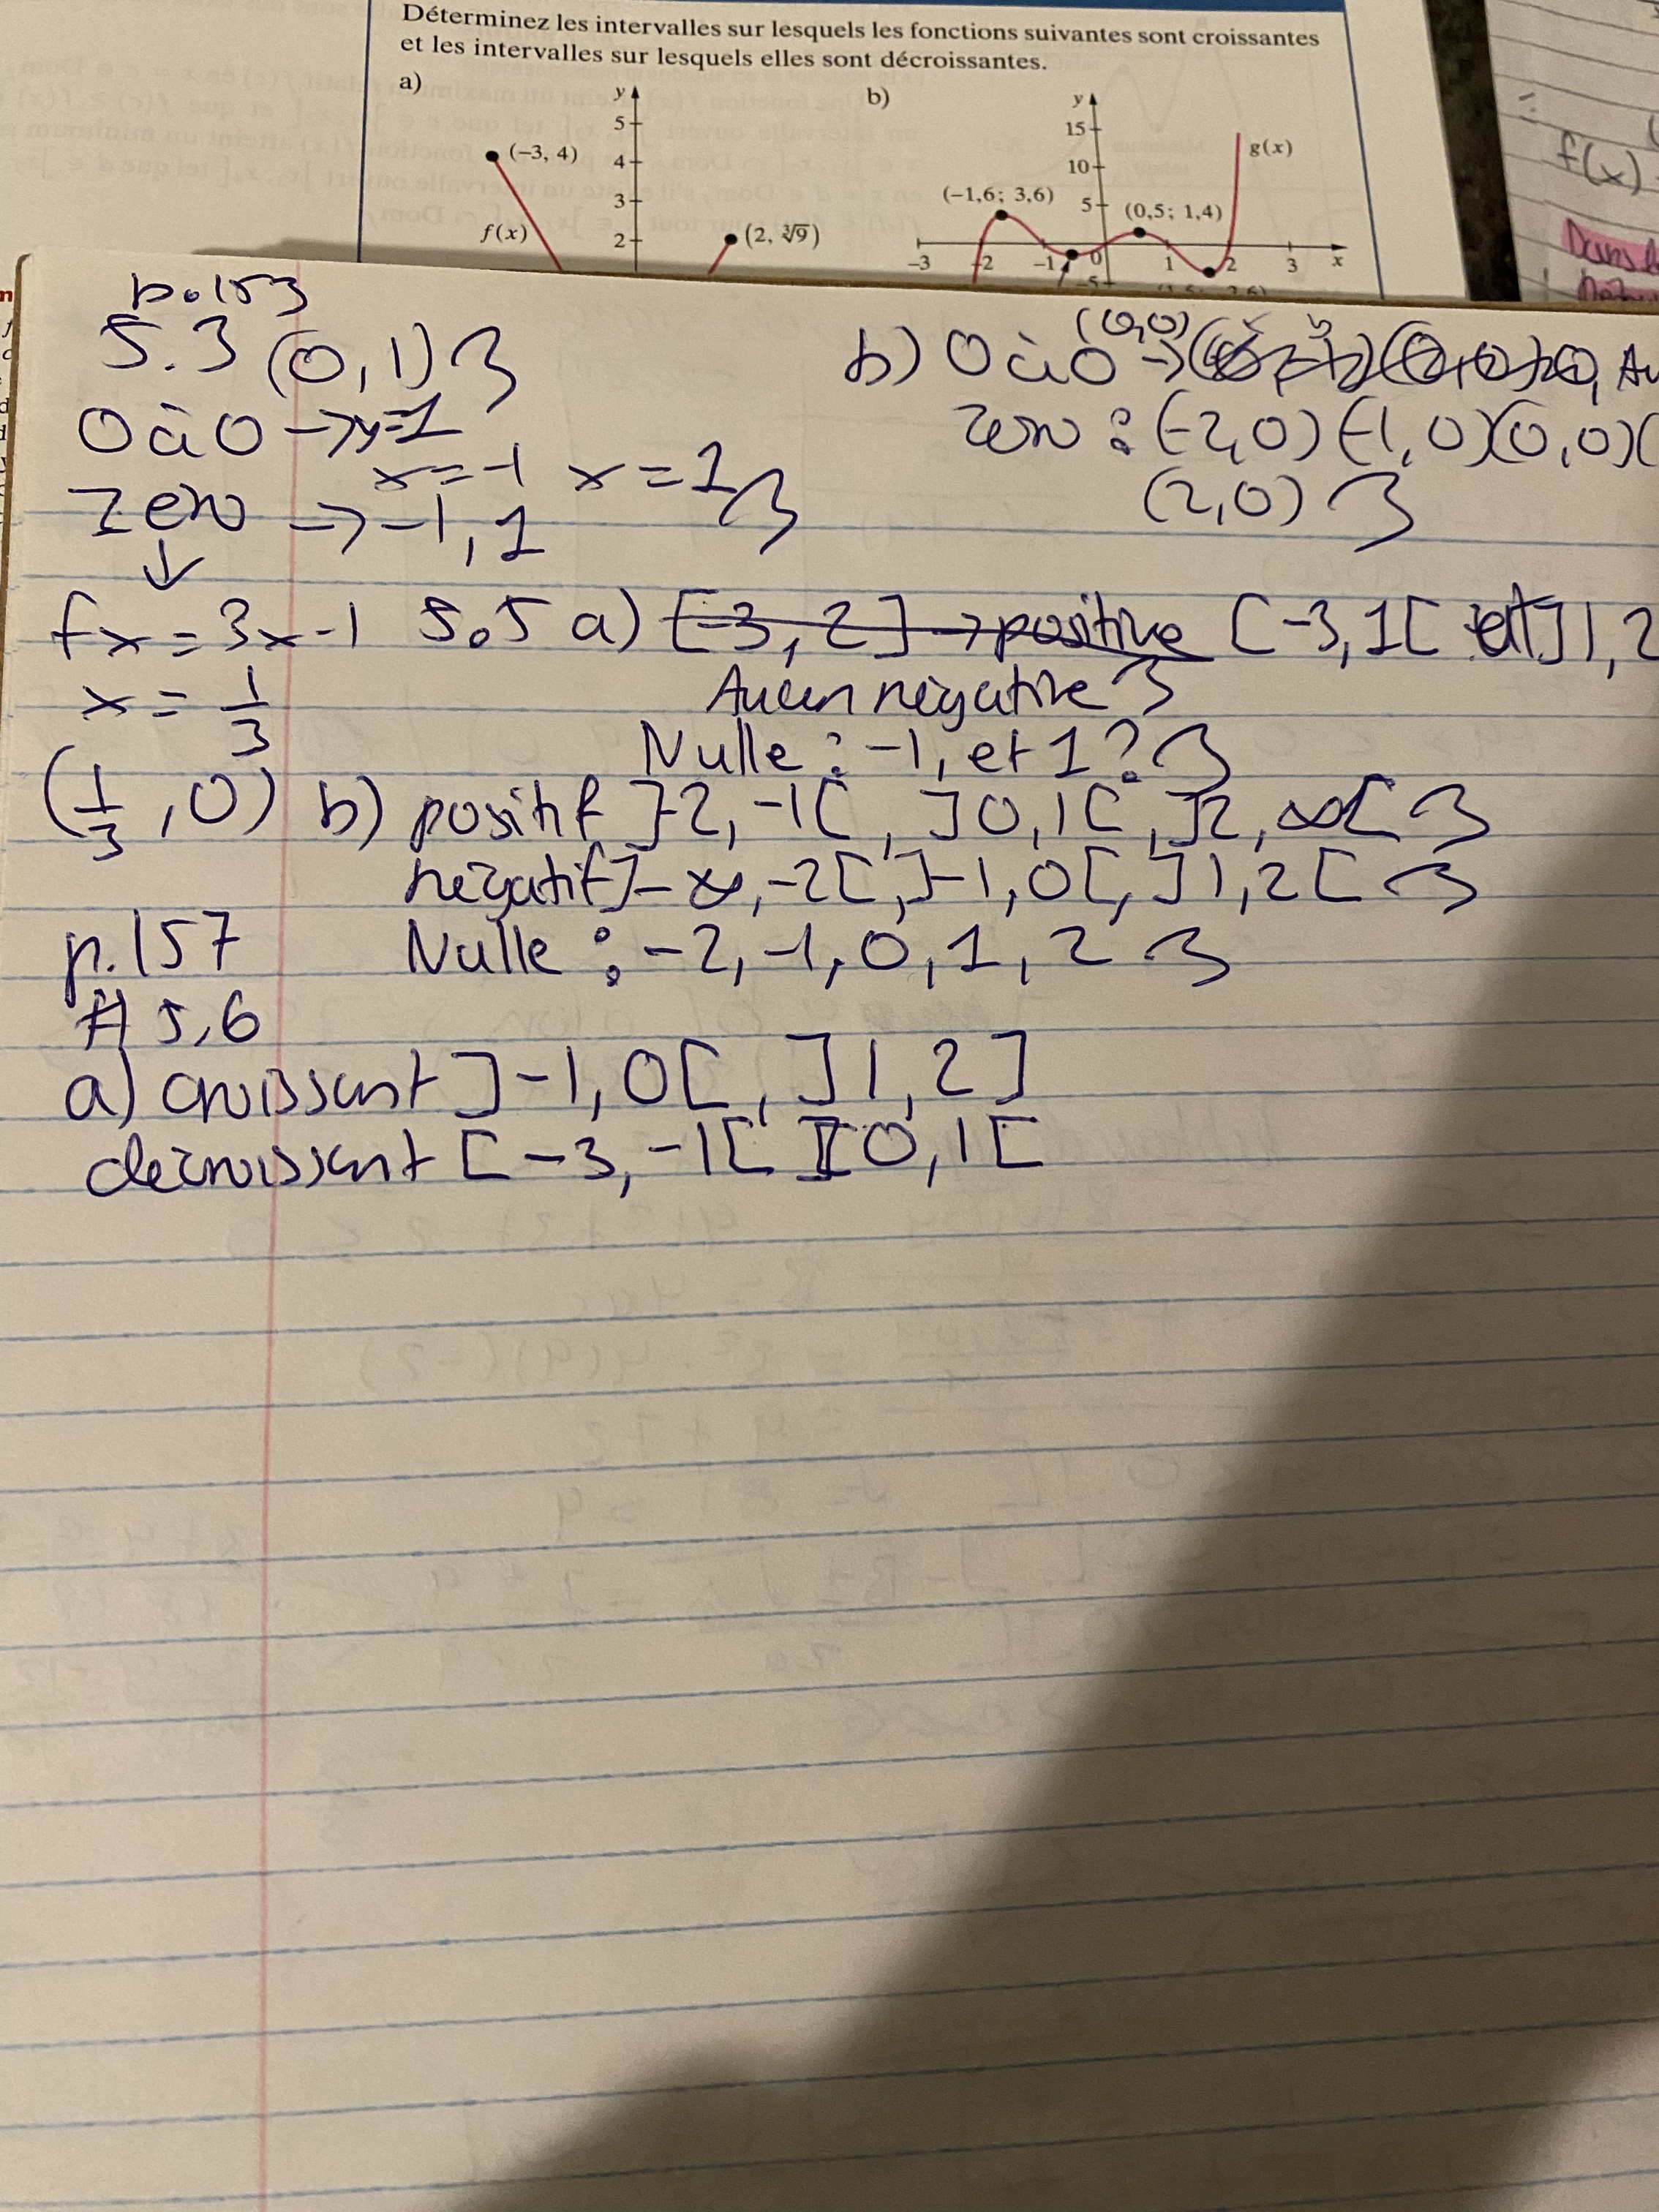 Déterminez les intervalles sur lesquels les fonctions suivantes sont croissantes
et les intervalles sur lesquels elles sont décroissantes.
a)
y
5
(−3, 4)
4
3
f(x)
2
(2, ∛9)
b)
y
15
g(x)
10
(−1,6; 3,6)
5
(0,5; 1,4)
−3 −2 −1 0 1 2 3 x
−5
f(x)
p.153
5.3 (0,1)
0 à 0 → y=1
x=-1 x=1
Zero → -1, 1
fx = 3x-1
x = 1/3
(1/3, 0)
b) 0 à 0 → (0,0)
Zero : (-2,0) (-1,0)(0,0)(
(2,0)
5.5 a) [-3, 2] → positive [-3,1[ et ]1,2
Aucun négative
Nulle : -1, et 1?
b) positif ]-2, -1[, ]0,1[, ]2, ∞[
négatif ]-∞, -2[, ]-1,0[, ]1,2[
Nulle : -2, -1, 0, 1, 2
p.157
# 5,6
a) croissant ]-1,0[, ]1,2]
décroissant [-3, -1[ ]0,1[